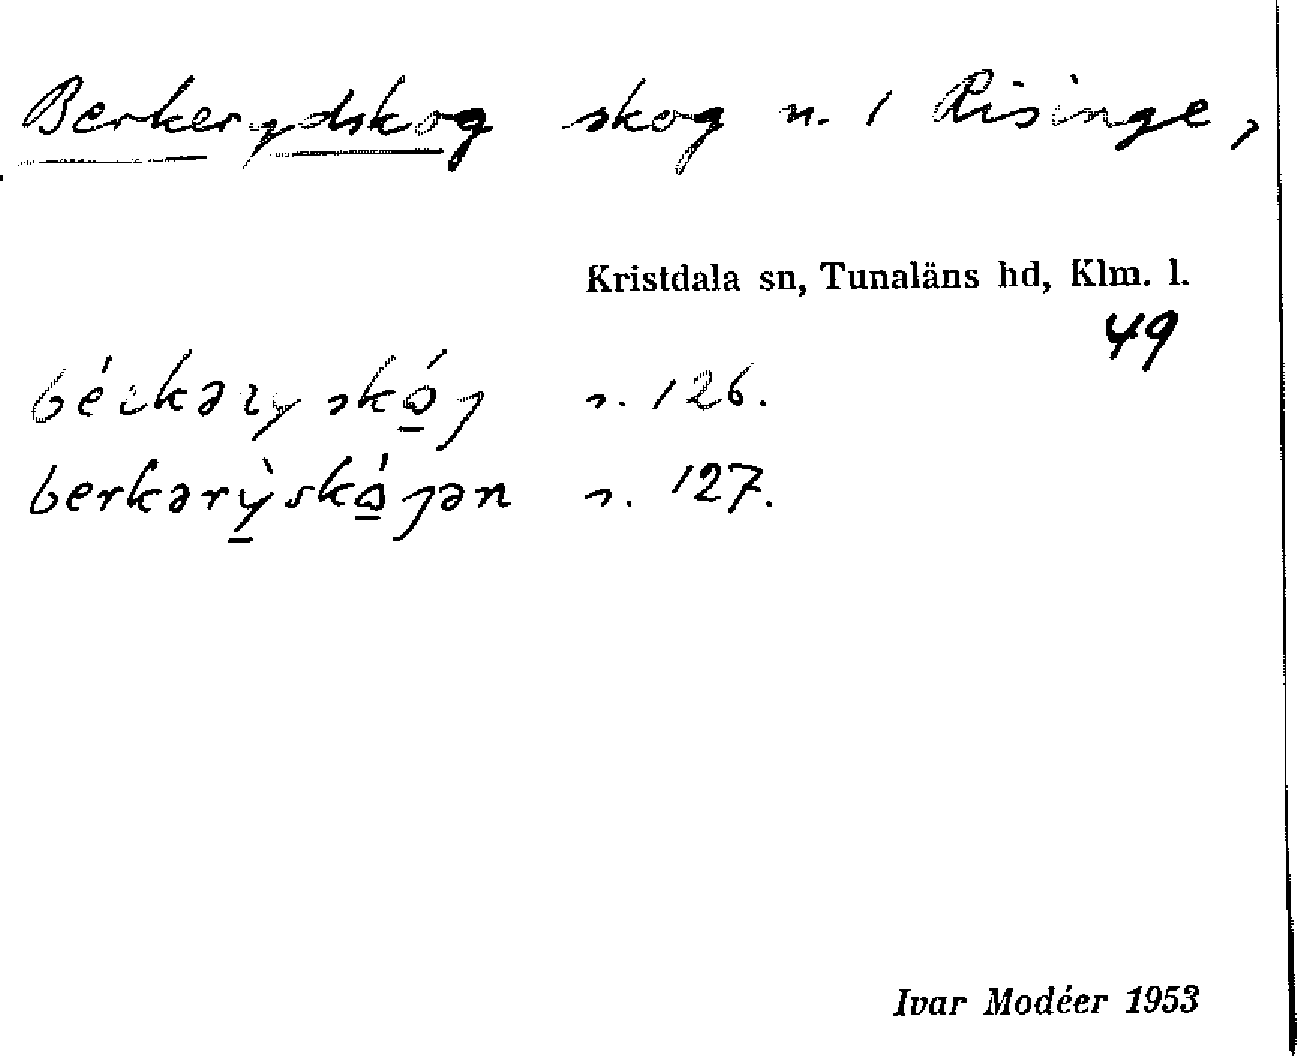 Berkerydskog skog n. 1 Risinge,
Kristdala sn, Tunaläns hd, Klm. l.
49
bérkəry skóg n. 126.
berkərỳskógən n. 127.
Ivar Modéer 1953